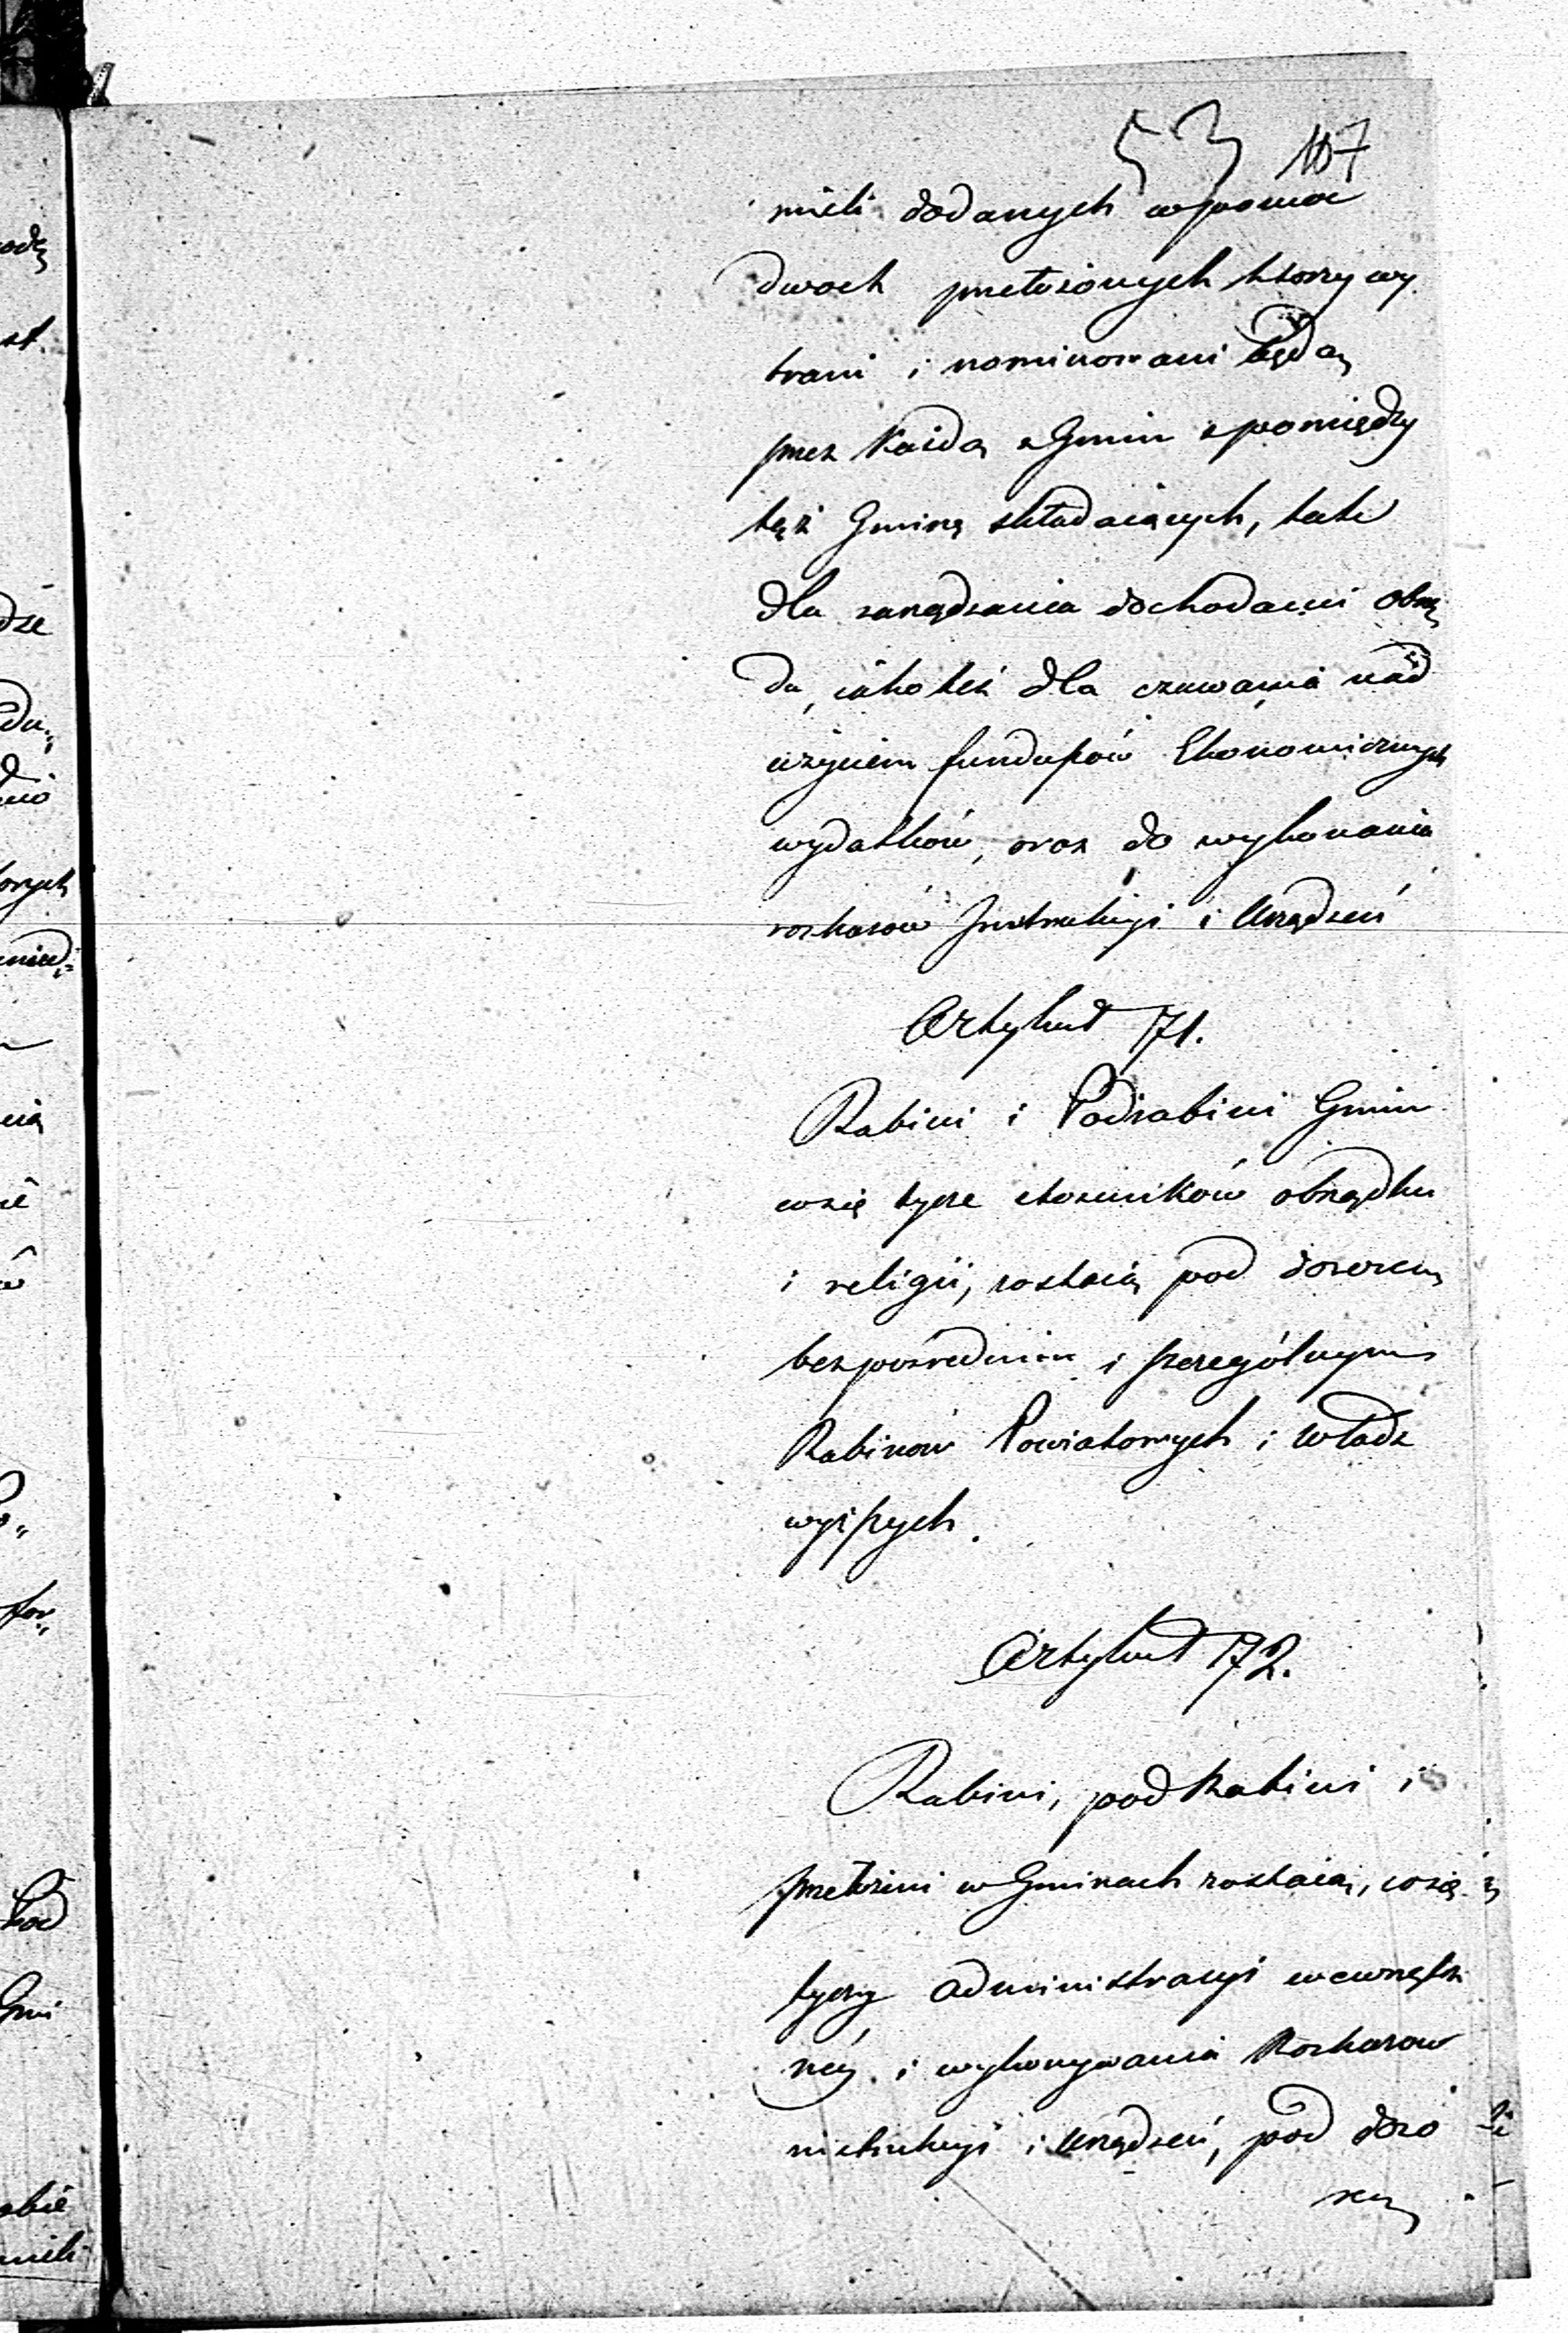 53 107
mieli dodanych w pomoc
dwoch przełożonych ktorzy wy
brani i nominowani będą
przez Każdą z Gmin z pomiędzy
tęż Gminę składaiących, tak
dla zarządzania dochodami obrzę
du, iako też dla czuwania nad
użyciem funduszów Ekonomicznych
wydatków, oraz do wykonania
rozkazów Instrukcyi i Urządzeń
Artykuł 71.
Rabini i Podrabini Gmin
co się tycze stosunków obrządku
i religii, zostaią pod dozorem
bezpośrednim i szczególnym
Rabinow Powiatowych i Władz
wyższych.
Artykuł 72.
Rabini, pod Rabini i
przełożeni w Gminach zostaią, co się
tyczy administracyi wewnętrz
néy i wykonywania Rozkazow
instrukcyi i Urządzeń, pod dozo
rem